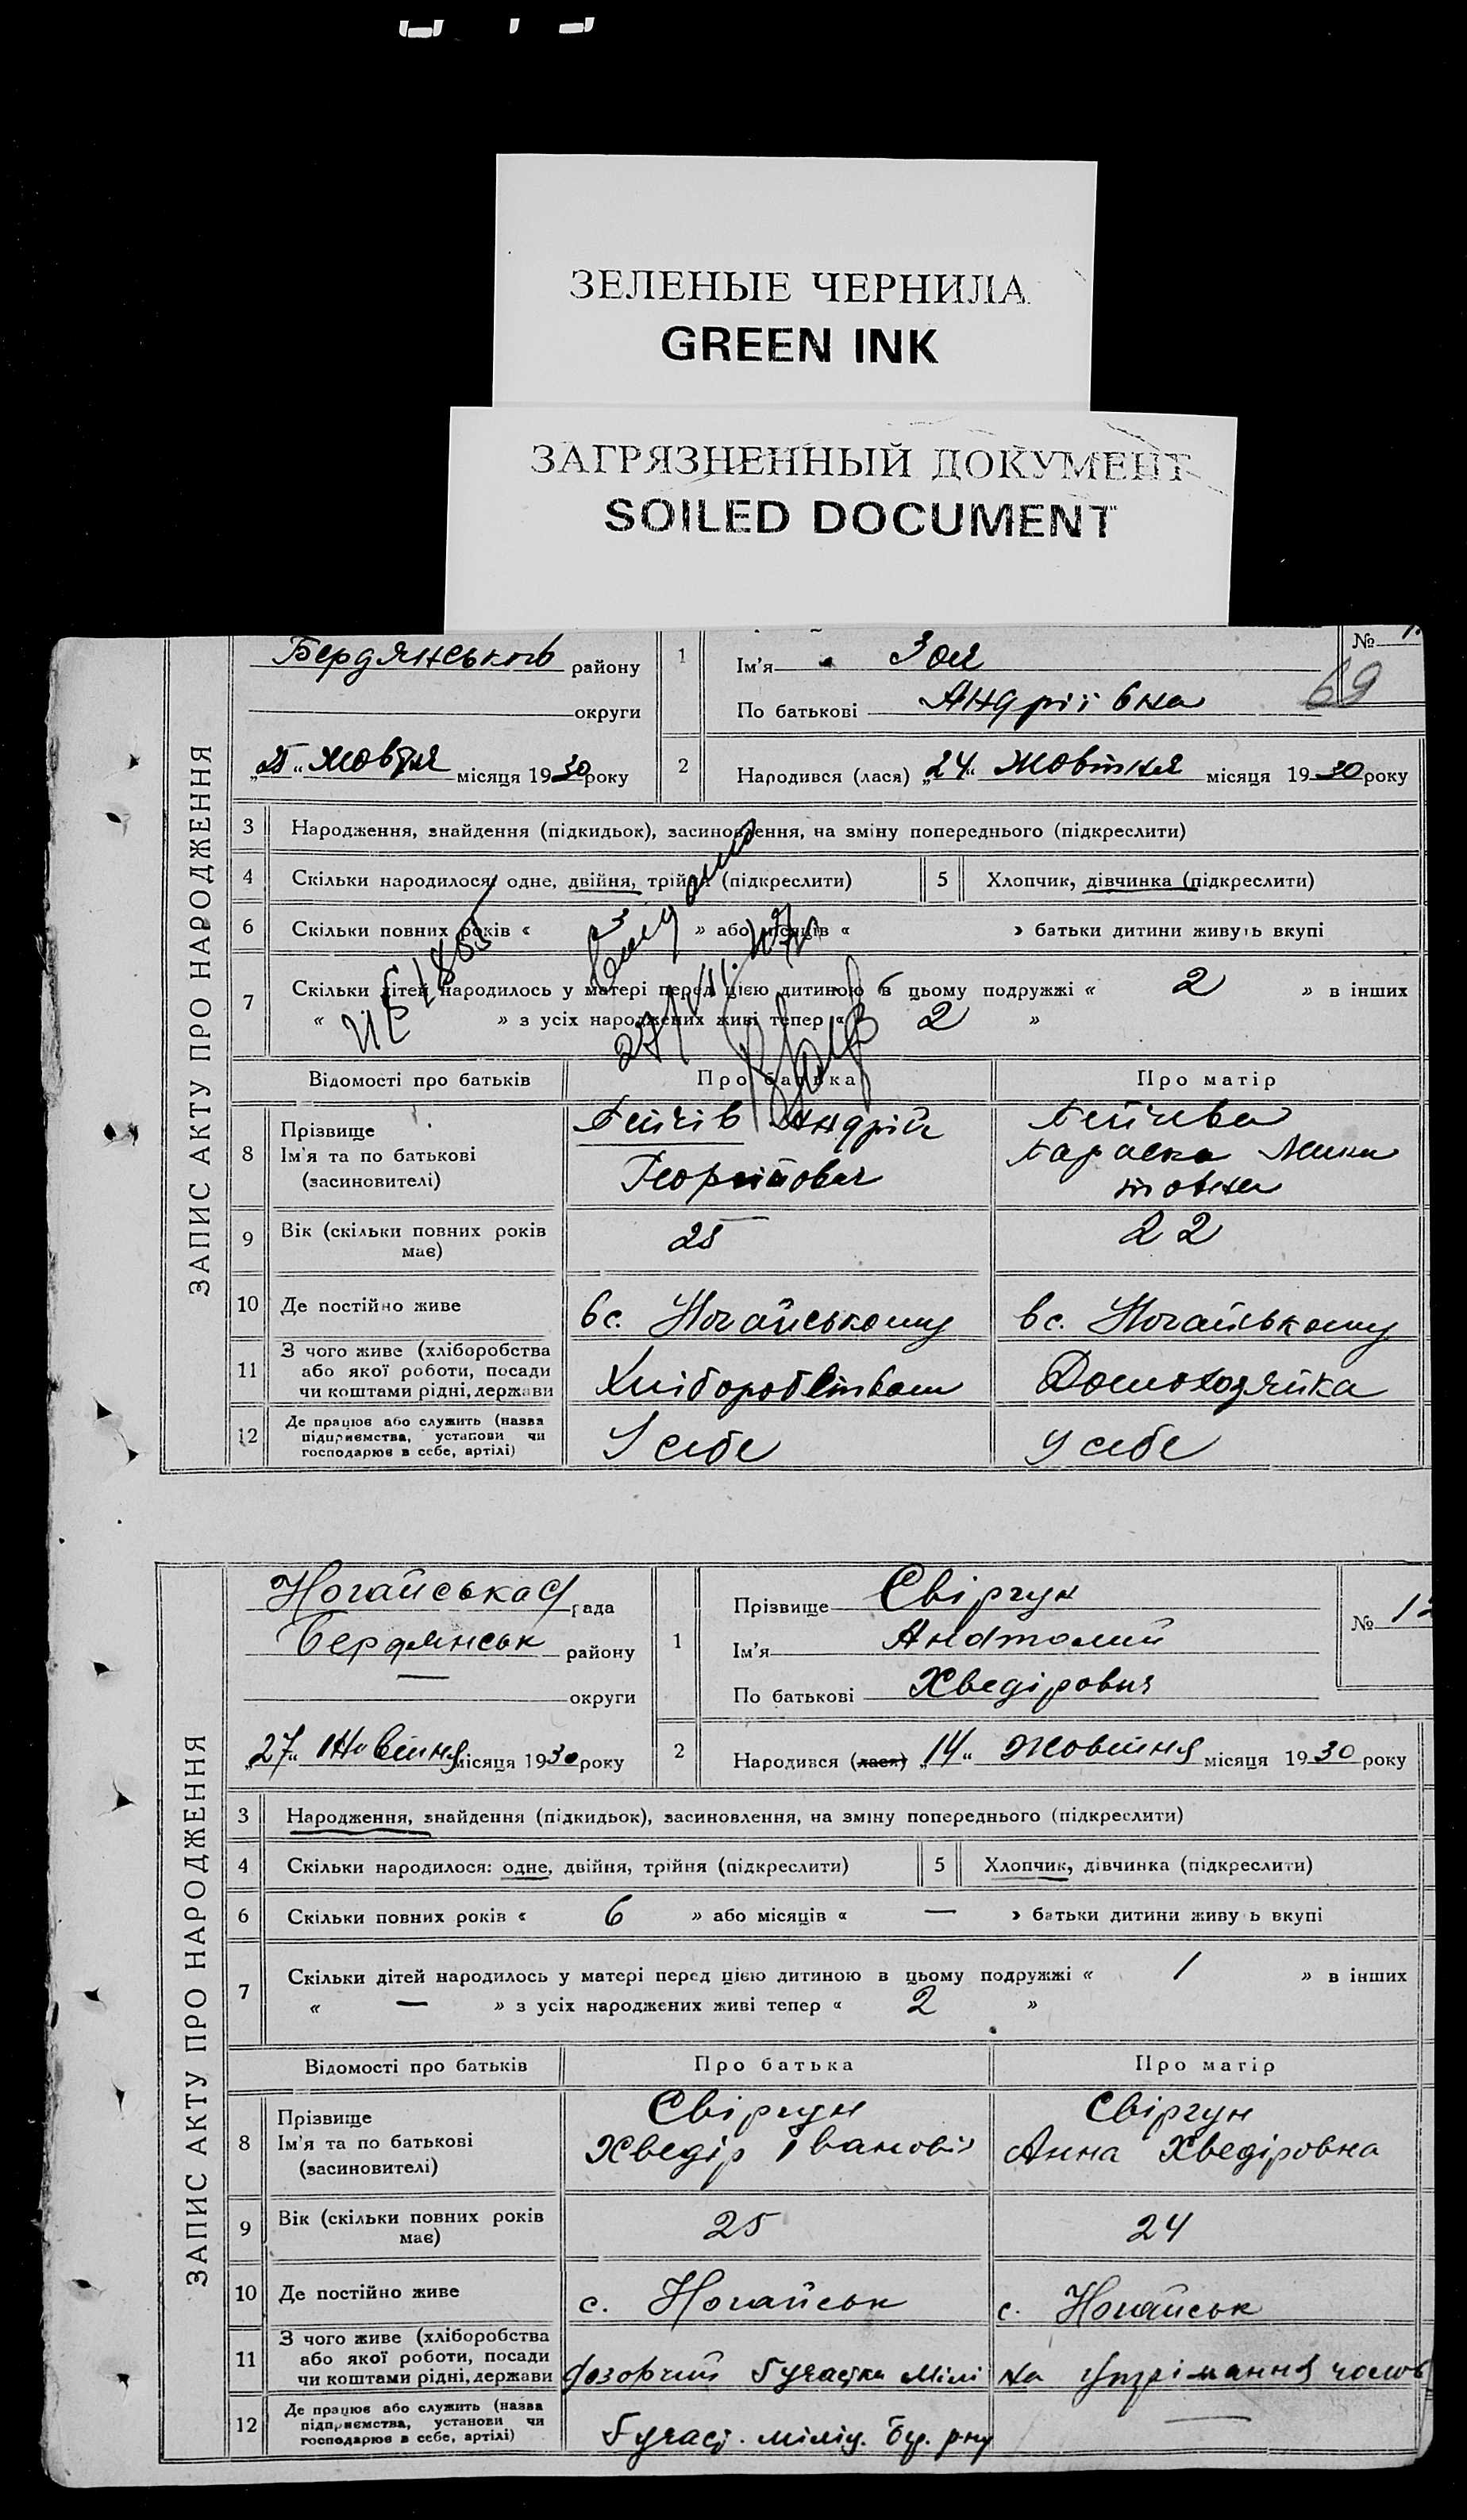 ЗЕЛЕНЫЕ ЧЕРНИЛА
GREEN INK
ЗАГРЯЗНЕННЫЙ ДОКУМЕНТ
SOILED DOCUMENT
ЗАПИС АКТУ ПРО НАРОДЖЕННЯ
Бердянського району
округи
„25“ жовтня місяця 1930 року
1
Ім'я Зоя
По батькові Андріївна
№
69
2
Народився (лася) „24“ Жовтня місяця 1930 року
3 Народження, знайдення (підкидьок), засиновлення, на зміну попереднього (підкреслити)
4 Скільки народилося: одне, двійня, трійня (підкреслити)
5 Хлопчик, дівчинка (підкреслити)
6 Скільки повних років « 3 » або місяців « » батьки дитини живуть вкупі
7 Скільки дітей народилось у матері перед цією дитиною в цьому подружжі « 2 » в інших
« » з усіх народжених живі тепер « 2 »
Відомості про батьків Про батька Про матір
8 Прізвище
Ім'я та по батькові
(засиновителі)
Пейчів Андрій
Георгійович
Пейчева
Параска Мики
товна
9 Вік (скільки повних років
має)
25
22
10 Де постійно живе
в с. Ногайському
в с. Ногайському
11 З чого живе (хліборобства
або якої роботи, посади
чи коштами рідні, держави
Хліборобством
Домохозяйка
12 Де працює або служить (назва
підприємства, установи чи
господарює в себе, артілі)
У себе
У себе
ЗАПИС АКТУ ПРО НАРОДЖЕННЯ
Ногайська рада
Бердянськ району
округи
„27“ Жовтня місяця 1930 року
1
Прізвище Свіргун
Ім'я Анатолий
По батькові Хведірович
№ 12
2
Народився (лася) „14“ Жовтня місяця 1930 року
3 Народження, знайдення (підкидьок), засиновлення, на зміну попереднього (підкреслити)
4 Скільки народилося: одне, двійня, трійня (підкреслити)
5 Хлопчик, дівчинка (підкреслити)
6 Скільки повних років « 6 » або місяців « — » батьки дитини живуть вкупі
7 Скільки дітей народилось у матері перед цією дитиною в цьому подружжі « 1 » в інших
« — » з усіх народжених живі тепер « 2 »
Відомості про батьків Про батька Про матір
8 Прізвище
Ім'я та по батькові
(засиновителі)
Свіргун
Хведір Іванович
Свіргун
Анна Хведіровна
9 Вік (скільки повних років
має)
25
24
10 Де постійно живе
с. Ногайськ
с. Ногайськ
11 З чого живе (хліборобства
або якої роботи, посади
чи коштами рідні, держави
на утрімання чолов
12 Де працює або служить (назва
підприємства, установи чи
господарює в себе, артілі)